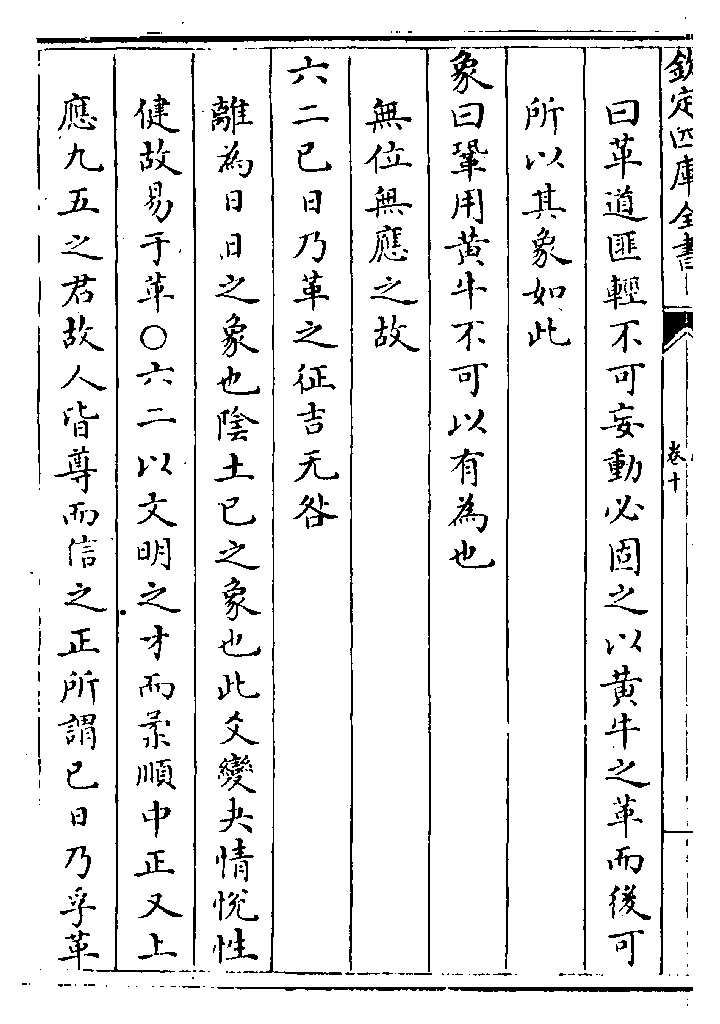 欽定四庫全書
卷十
曰革道匪輕不可妄動必固之以黄牛之革而後可
所以其象如此
象曰鞏用黄牛不可以有為也
無位無應之故
六二已日乃革之征吉无咎
離為日日之象也陰土已之象也此爻變夬情悅性
健故易于革○六二以文明之才而柔順中正又上
應九五之君故人皆尊而信之正所謂已日乃孚革